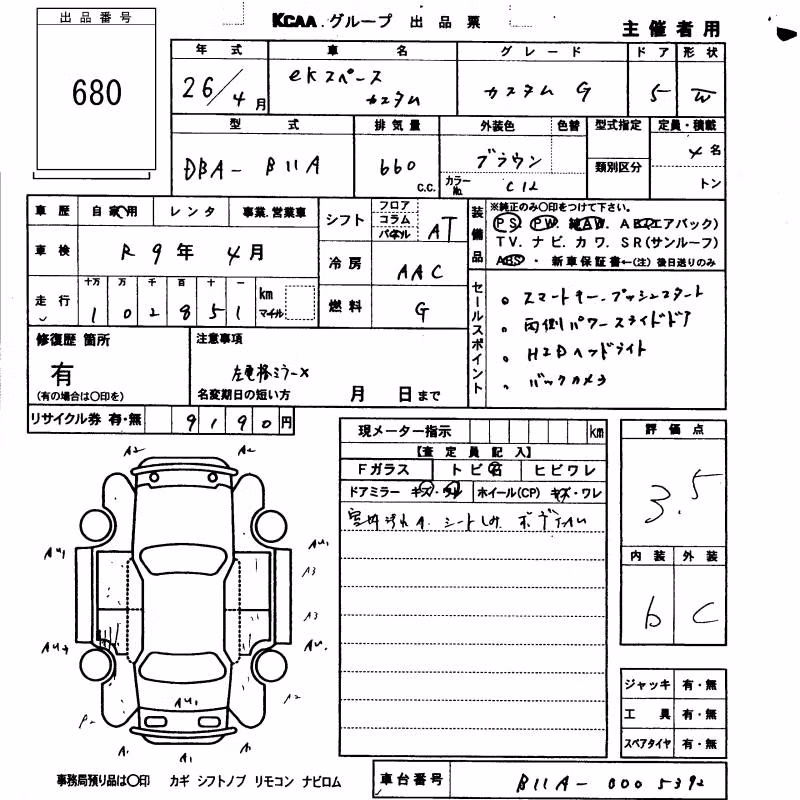 出品番号
680
KCAA.グループ 出品票
主催者用
年式 車名 グレード ドア 形状
26/4月 ekスペース カスタム カスタム G 5 W
型式 排気量 外装色 色替 型式指定 定員・積載
DBA- B11A 660 C.C. ブラウン カラーNo. C12 類別区分 4名 トン
車歴 自家用 レンタ 事業.営業車
車検 R 9年 4月
走行 十万 万 千 百 十 一
1 0 2 8 5 1 km マイル
シフト フロア コラム パネル AT
冷房 AAC
燃料 G
装備品
※純正のみ〇印をつけて下さい。
PS. PW. 純AW. AB(エアバック)
TV. ナビ. カワ. SR(サンルーフ)
ABS ・ 新車保証書←(注) 後日送りのみ
セールスポイント
。スマートキー.プッシュスタート
。両側パワースライドドア
。HIDヘッドライト
。バックカメラ
修復歴 箇所
有
(有の場合は〇印を)
注意事項
左電格ミラーX
名変期日の短い方 月 日まで
リサイクル券 有・無 9190円
現メーター指示 km
【査定員記入】
Fガラス トビ石 ヒビワレ
ドアミラー キズ・ワレ ホイール(CP) キズ・ワレ
室内汚れA. シートしみ ボディ
評価点
3.5
内装 外装
b C
A2 A2
AU1 AU1
A3
A3
AU
A2
P2
AU1
A1 A1 A1
ジャッキ 有・無
工具 有・無
スペアタイヤ 有・無
事務局預り品は〇印 カギ シフトノブ リモコン ナビロム
車台番号 B11A-0005392